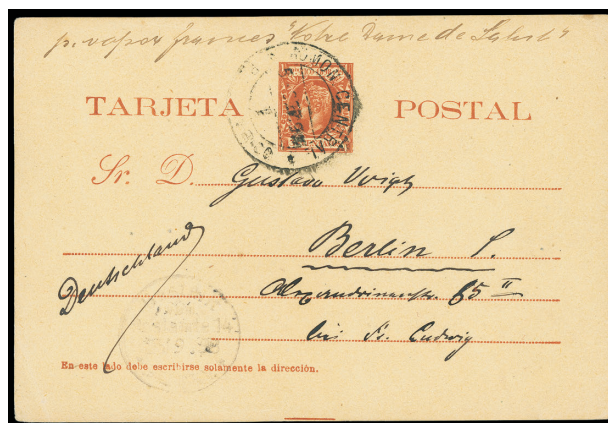 p. vapor frances "Notre Dame de Salut"
TARJETA POSTAL
CENTRAL
Sr. D. Gustavo Voigt
Berlin S.
Deutschland
Alexandrinenstr. 65 II
bei Fr. Ludwig
En este lado debe escribirse solamente la dirección.